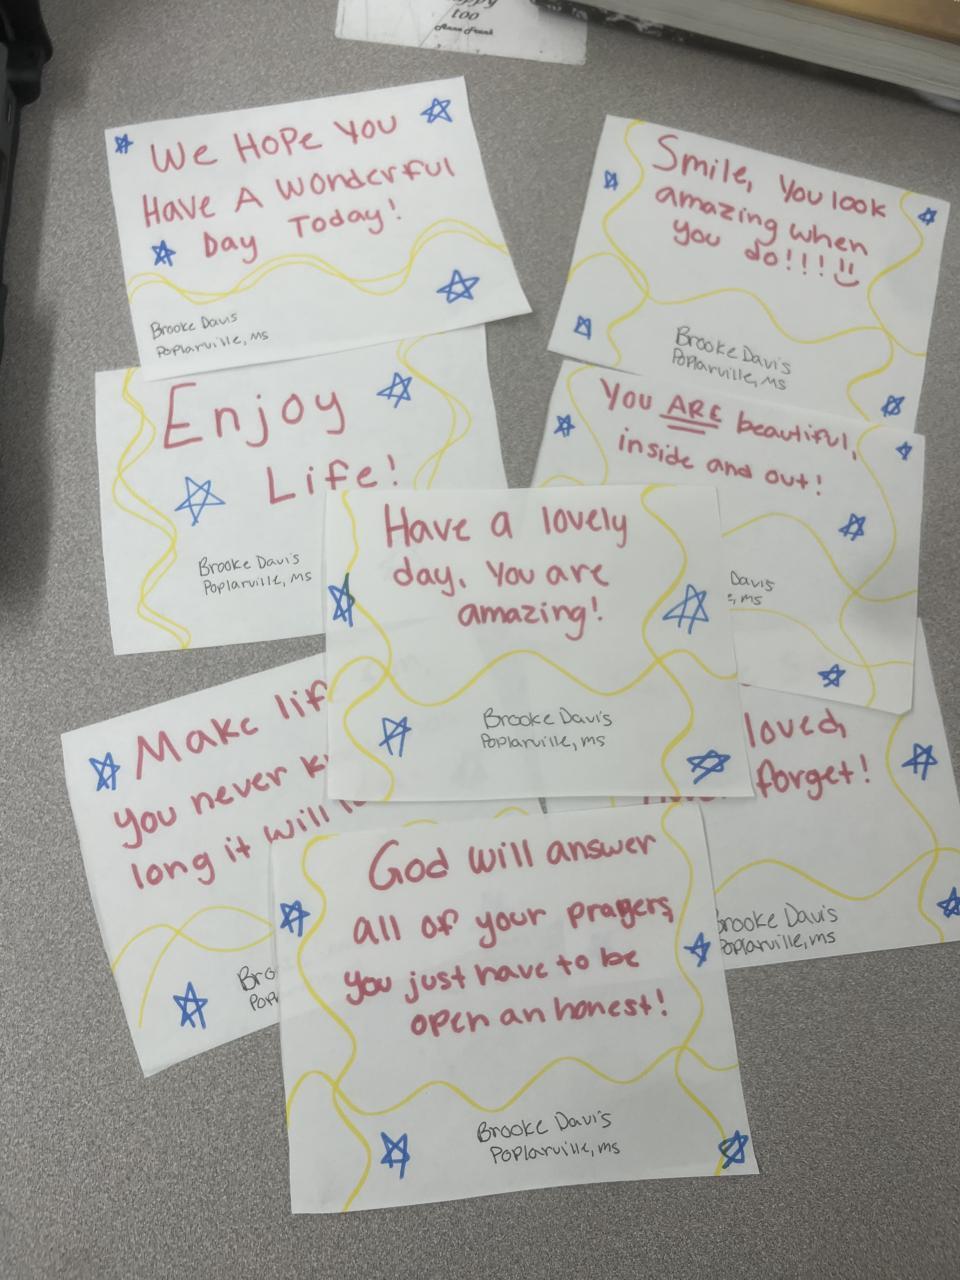 too
Anne Frank
We Hope You
Have A Wonderful
Day Today!
Brooke Davis
Poplarville, MS
Smile, You look
amazing when
you do!!!
Brooke Davis
Poplarville, MS
Enjoy
Life!
Brooke Davis
Poplarville, MS
You ARE beautiful,
inside and out!
Davis
MS
Have a lovely
day. You are
amazing!
Brooke Davis
Poplarville, MS
Make
you never
long it will
loved,
forget!
Brooke Davis
Poplarville, MS
God will answer
all of your prayers,
you just have to be
open an honest!
Brooke Davis
Poplarville, MS